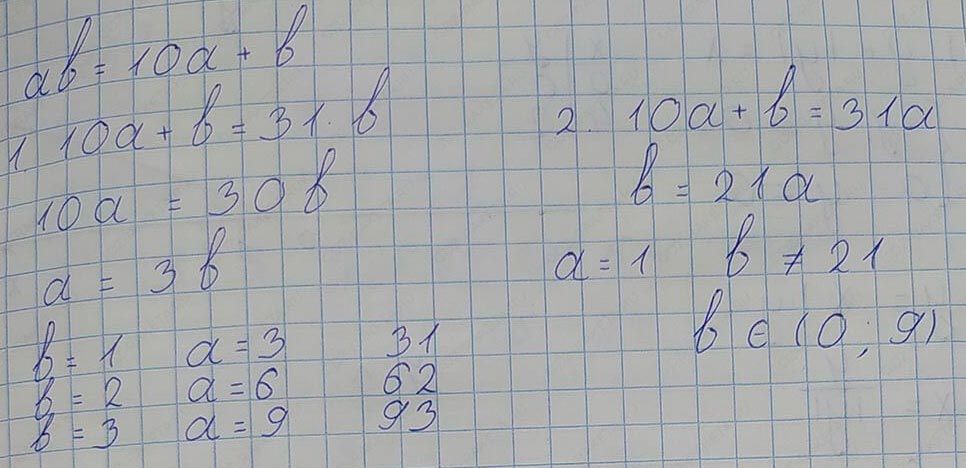 ab = 10a + b
1. 10a + b = 31 · b
10a = 30b
a = 3b
b = 1 a = 3 31
b = 2 a = 6 62
b = 3 a = 9 93
2. 10a + b = 31a
b = 21a
a = 1 b ≠ 21
b ∈ (0; 9)